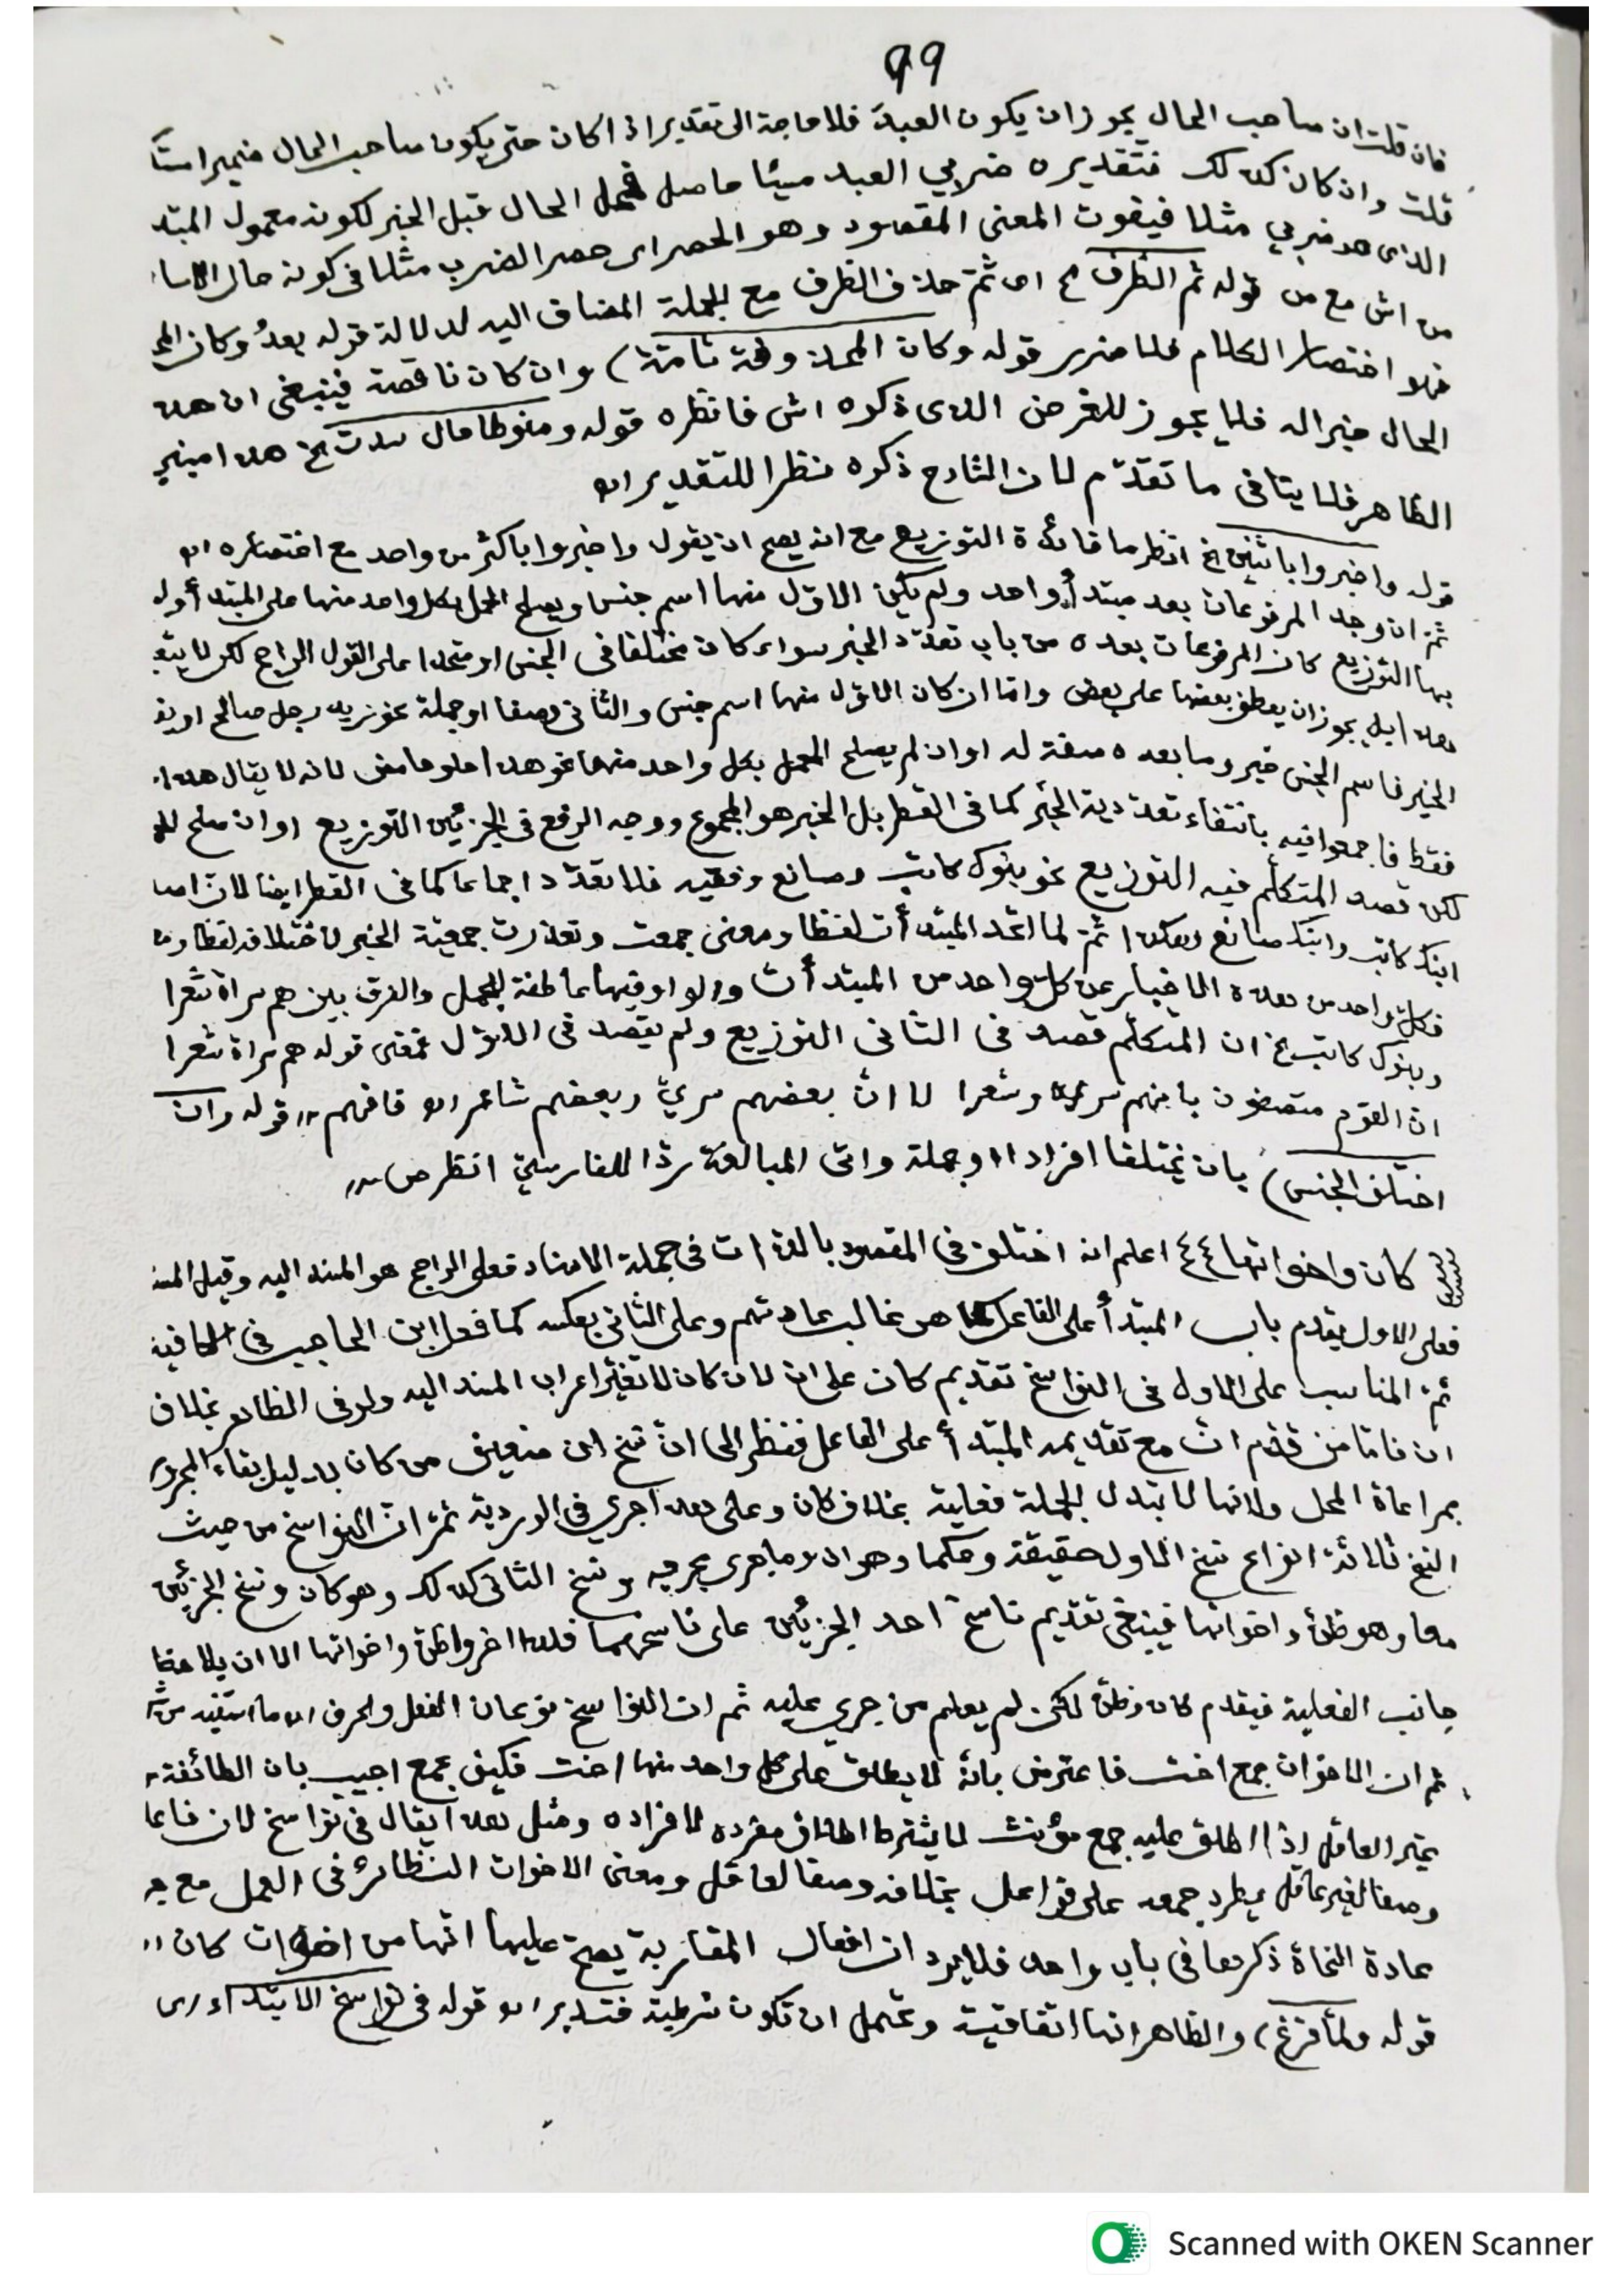 99
فان قلت ان صاحب الحال يجوز ان يكون العبد فلا حاجة الى تقدير اذا كان حتى يكون صاحب الحال ضميرا مستتـ
قلت وان كان كذلك فتقديره ضربي العبد مسيئا حاصل فجعل الحال قبل الخبر لكونه معمول المبتد
الذى هو ضربي مثلا فيفوت المعنى المقصود وهو الحصر اى حصر الضرب مثلا فى كونه حال الاسا
من اش مع من قوله ثم الظرف الخ اى ثم حذف الظرف مع الجملة المضاف اليه لدلالة قوله بعدُ وكان المحـ
اختصار الكلام فلا ضرر قوله وكان المحذوفة تامة) وان كان ناقصة فينبغى ان هذه
الحال خبرا له فلا يجوز للغرض الذى ذكره اش فانظره قوله ومنوطا حال سدت الخ هذا مبني
الظاهر فلا ينافى ما تقدّم لان الشارح ذكره نظرا للتقدير اه
قوله واخبروا باثنين الخ انظر ما فائدة التوزيع مع انه يصح ان يقول واخبروا باكثر من واحد مع اختصاره اه
ثم ان وجد المرفوعات بعد مبتدأ واحد ولم يكن الاوّل منها اسم جنس ويصلح الحمل بكل واحد منها على المبتدأ ولم
بها التوزيع كان المرفوعات بعده من باب تعدّد الخبر سواء كان مختلفا فى الجنس او متحدا على القول الراجح لكن
هذا بل يجوز ان يعطف بعضها على بعض واما ان كان الاوّل منها اسم جنس والثانى وصفا او جملة نحو زيد رجل صالح او
الخير فاسم الجنس خبر وما بعده صفة له او ان لم يصلح الحمل بكل واحد منهما نحو هذا حلو حامض لانه لا يقال هذا
فقط فاجمعوا فيه بانتفاء تعددية الخبر كما فى القطر بل الخبر هو المجموع ووجه الرفع فى الجزئين التوزيع او ان صلح
لكن قصد المتكلّم فيه التوزيع نحو بنوك كاتب وصانع وفقيه فلا تعدّد اجماعا كما فى القطر ايضا لان
ابنك كاتب وابنك صانع وهكذا ثمّ لما اتحد المبتدأت لفظا ومعنى جمعت وتعذرت جمعية الخبر لاختلافه لفظا
فكل واحد من هذه الاخبار عن كلّ واحد من المبتدأت والواو فيها عاطفة للجمل والفرق بين هم سراة شعرا
وبنوك كاتب الخ ان المتكلّم قصد فى الثانى التوزيع ولم يقصد فى الاوّل فمعنى قوله هم سراة شعرا
ان القوم متصفون بانهم سراة وشعرا لا انّ بعضهم سريّ وبعضهم شاعر اه فافهم ،، قوله وان
اختلف الجنس) بان يختلفا افرادا وجملة واتى المبالغة ردّا للفارسيّ انظر ص
كان واخواتها ٤٤ اعلم انه اختلف فى المقصود بالذات فى جملة الاسناد فعلى الراجح هو المسند اليه وقيل المسند
فعلى الاول يقدم باب المبتدأ على الفاعل كما هو غالب عادتهم وعلى الثانى بعكسه كما فعل ابن الحاجب فى الكافية
ثمّ المناسب على الاول فى النواسخ تقديم كان على ان لان كان لا تغيّر اعراب المسند اليه ولو فى الظاهر بخلاف
ان فاما من قدّم انّ مع تقديمه المبتدأ على الفاعل فنظر الى انّ نسخ ان ضعيف من كان بدليل بقاء
بمراعاة المحل ولانها لا تبدل الجملة فعلية بخلاف كان وعلى هذا جرى فى الوردية ثمّ انّ النواسخ من حيث
النسخ ثلاثة انواع نسخ الاول حقيقة وحكما وهو ان وما جرى مجريه ونسخ الثانى كذلك وهو كان ونسخ الجزئين
معا وهو ظنّ واخواتها فينبغى تقديم ناسخ احد الجزئين على ناسخهما فلذا اخروا ظنّ واخواتها الا ان يلاحظ
جانب الفعلية فيقدم كان وظنّ لكن لم يعلم من جرى عليه ثم ان النواسخ نوعان الفعل والحرف اه ما استفيد من ش
ثم ان الاخوات جمع اخت فاعترض بانّه لا يطلق على كل واحد منها اخت فكيف يجمع اجيب بان الطائفة
غير العاقل اذا اطلق عليه جمع مؤنث لا يشترط اطلاق مفرده لافراده ومثل هذا يقال فى نواسخ لان فاعلا
وصفا لغير عاقل يطرد جمعه على فواعل بخلافه وصفا لعاقل ومعنى الاخوات النظائر فى العمل مع
عادة النحاة ذكرها فى باب واحد فلا يرد ان افعال المقاربة يصحّ عليها انّها من اخوات كان ،،
قوله ولمّا فرغ) والظاهر انها اتفاقية ويحتمل ان تكون شرطية فتدبر اه قوله فى نواسخ الابتداء اى
Scanned with OKEN Scanner